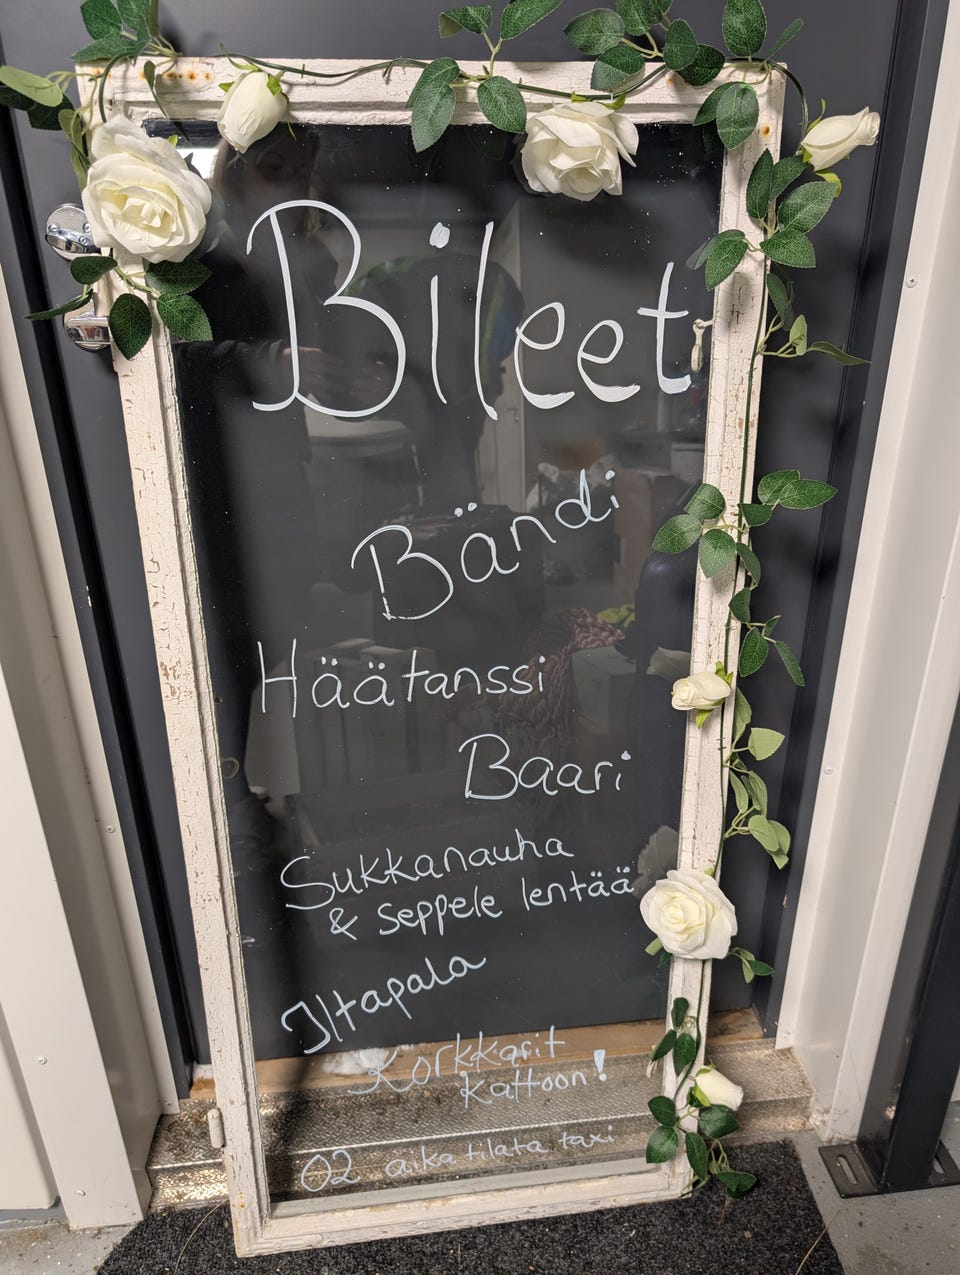 Bileet
Bändi
Häätanssi
Baari
Sukkanauha
& seppele lentää
Iltapala
Korkkarit
kattoon!
02 aika tilata taxi